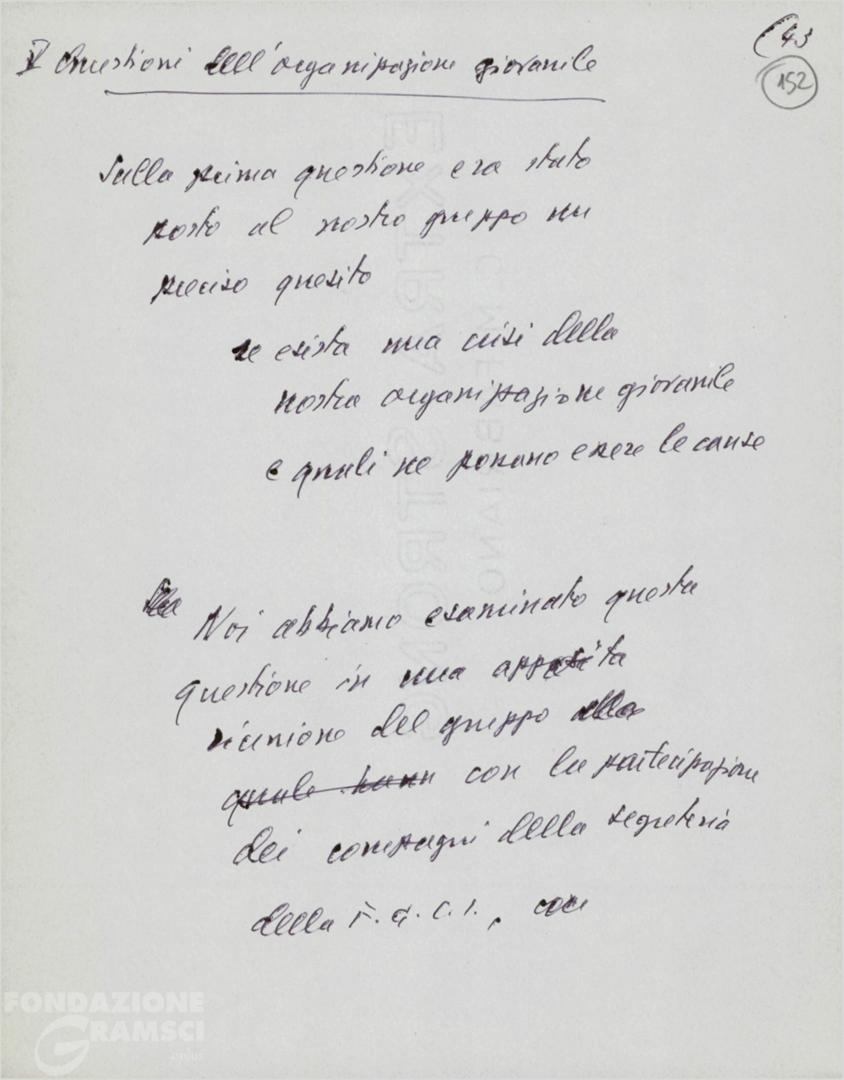 (43
152
I Questioni dell'organizzazione giovanile
Sulla prima questione era stato
posto al nostro gruppo un
preciso quesito
se esista una crisi della
nostra organizzazione giovanile
e quali ne possano essere le cause
Noi abbiamo esaminato questa
questione in una apposita
riunione del gruppo alla
quale hann con la partecipazione
dei compagni della segreteria
della F.G.C.I., con
EXTRA STRONG
FONDAZIONE
GRAMSCI
onlus